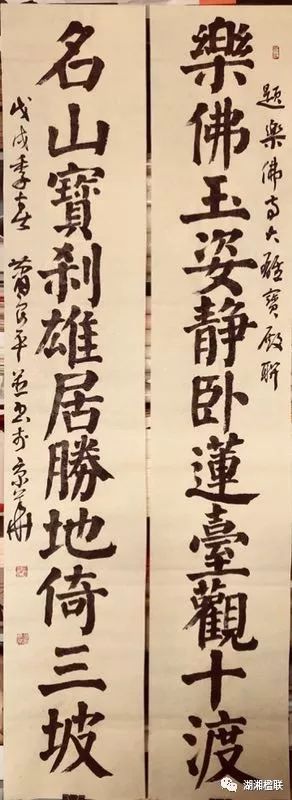 題樂佛寺大雄寶殿聯
樂佛玉姿静卧蓮臺觀十渡
名山寶刹雄居勝地倚三坡
戊戌季春 平並書於京華
湖湘楹联